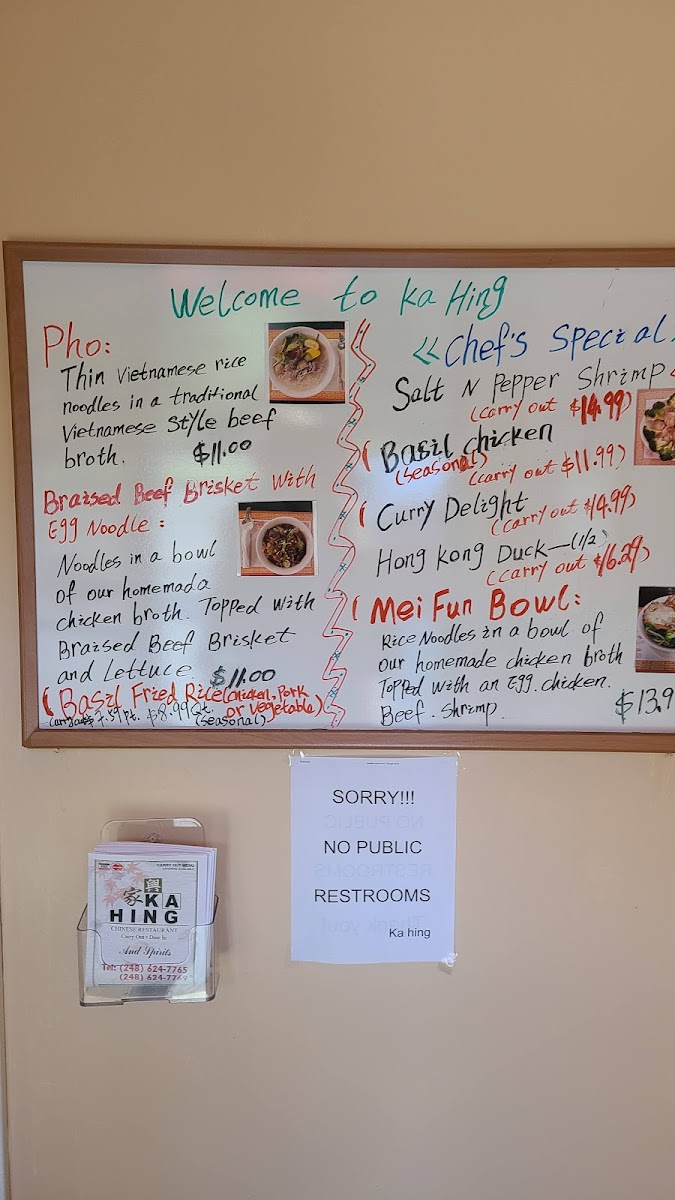 Welcome to Ka Hing
Pho:
Thin Vietnamese rice
noodles in a traditional
Vietnamese Style beef
broth. $11.00
Braised Beef Brisket With
Egg Noodle:
Noodles in a bowl
of our homemada
chicken broth. Topped With
Braised Beef Brisket
and Lettuce. $11.00
(Basil Fried Rice (chicken, Pork
or vegetable)
$8.99 qt.
(seasonal)
<<Chef's Special
Salt N Pepper Shrimp
(carry out $14.99)
(Basil chicken
(seasonal)
(carry out $11.99)
(Curry Delight
(carry out $14.99)
Hong Kong Duck—(1/2)
(carry out $16.29)
(Mei Fun Bowl:
Rice Noodles in a bowl of
our homemade chicken broth
Topped with an Egg. chicken.
Beef. Shrimp.
$13.9
SORRY!!!
NO PUBLIC
RESTROOMS
Ka hing
CARRY OUT MENU
家興
KA
HING
CHINESE RESTAURANT
Carry Out • Dine In
And Spirits
Tel: (248) 624-7765
(248) 624-7769